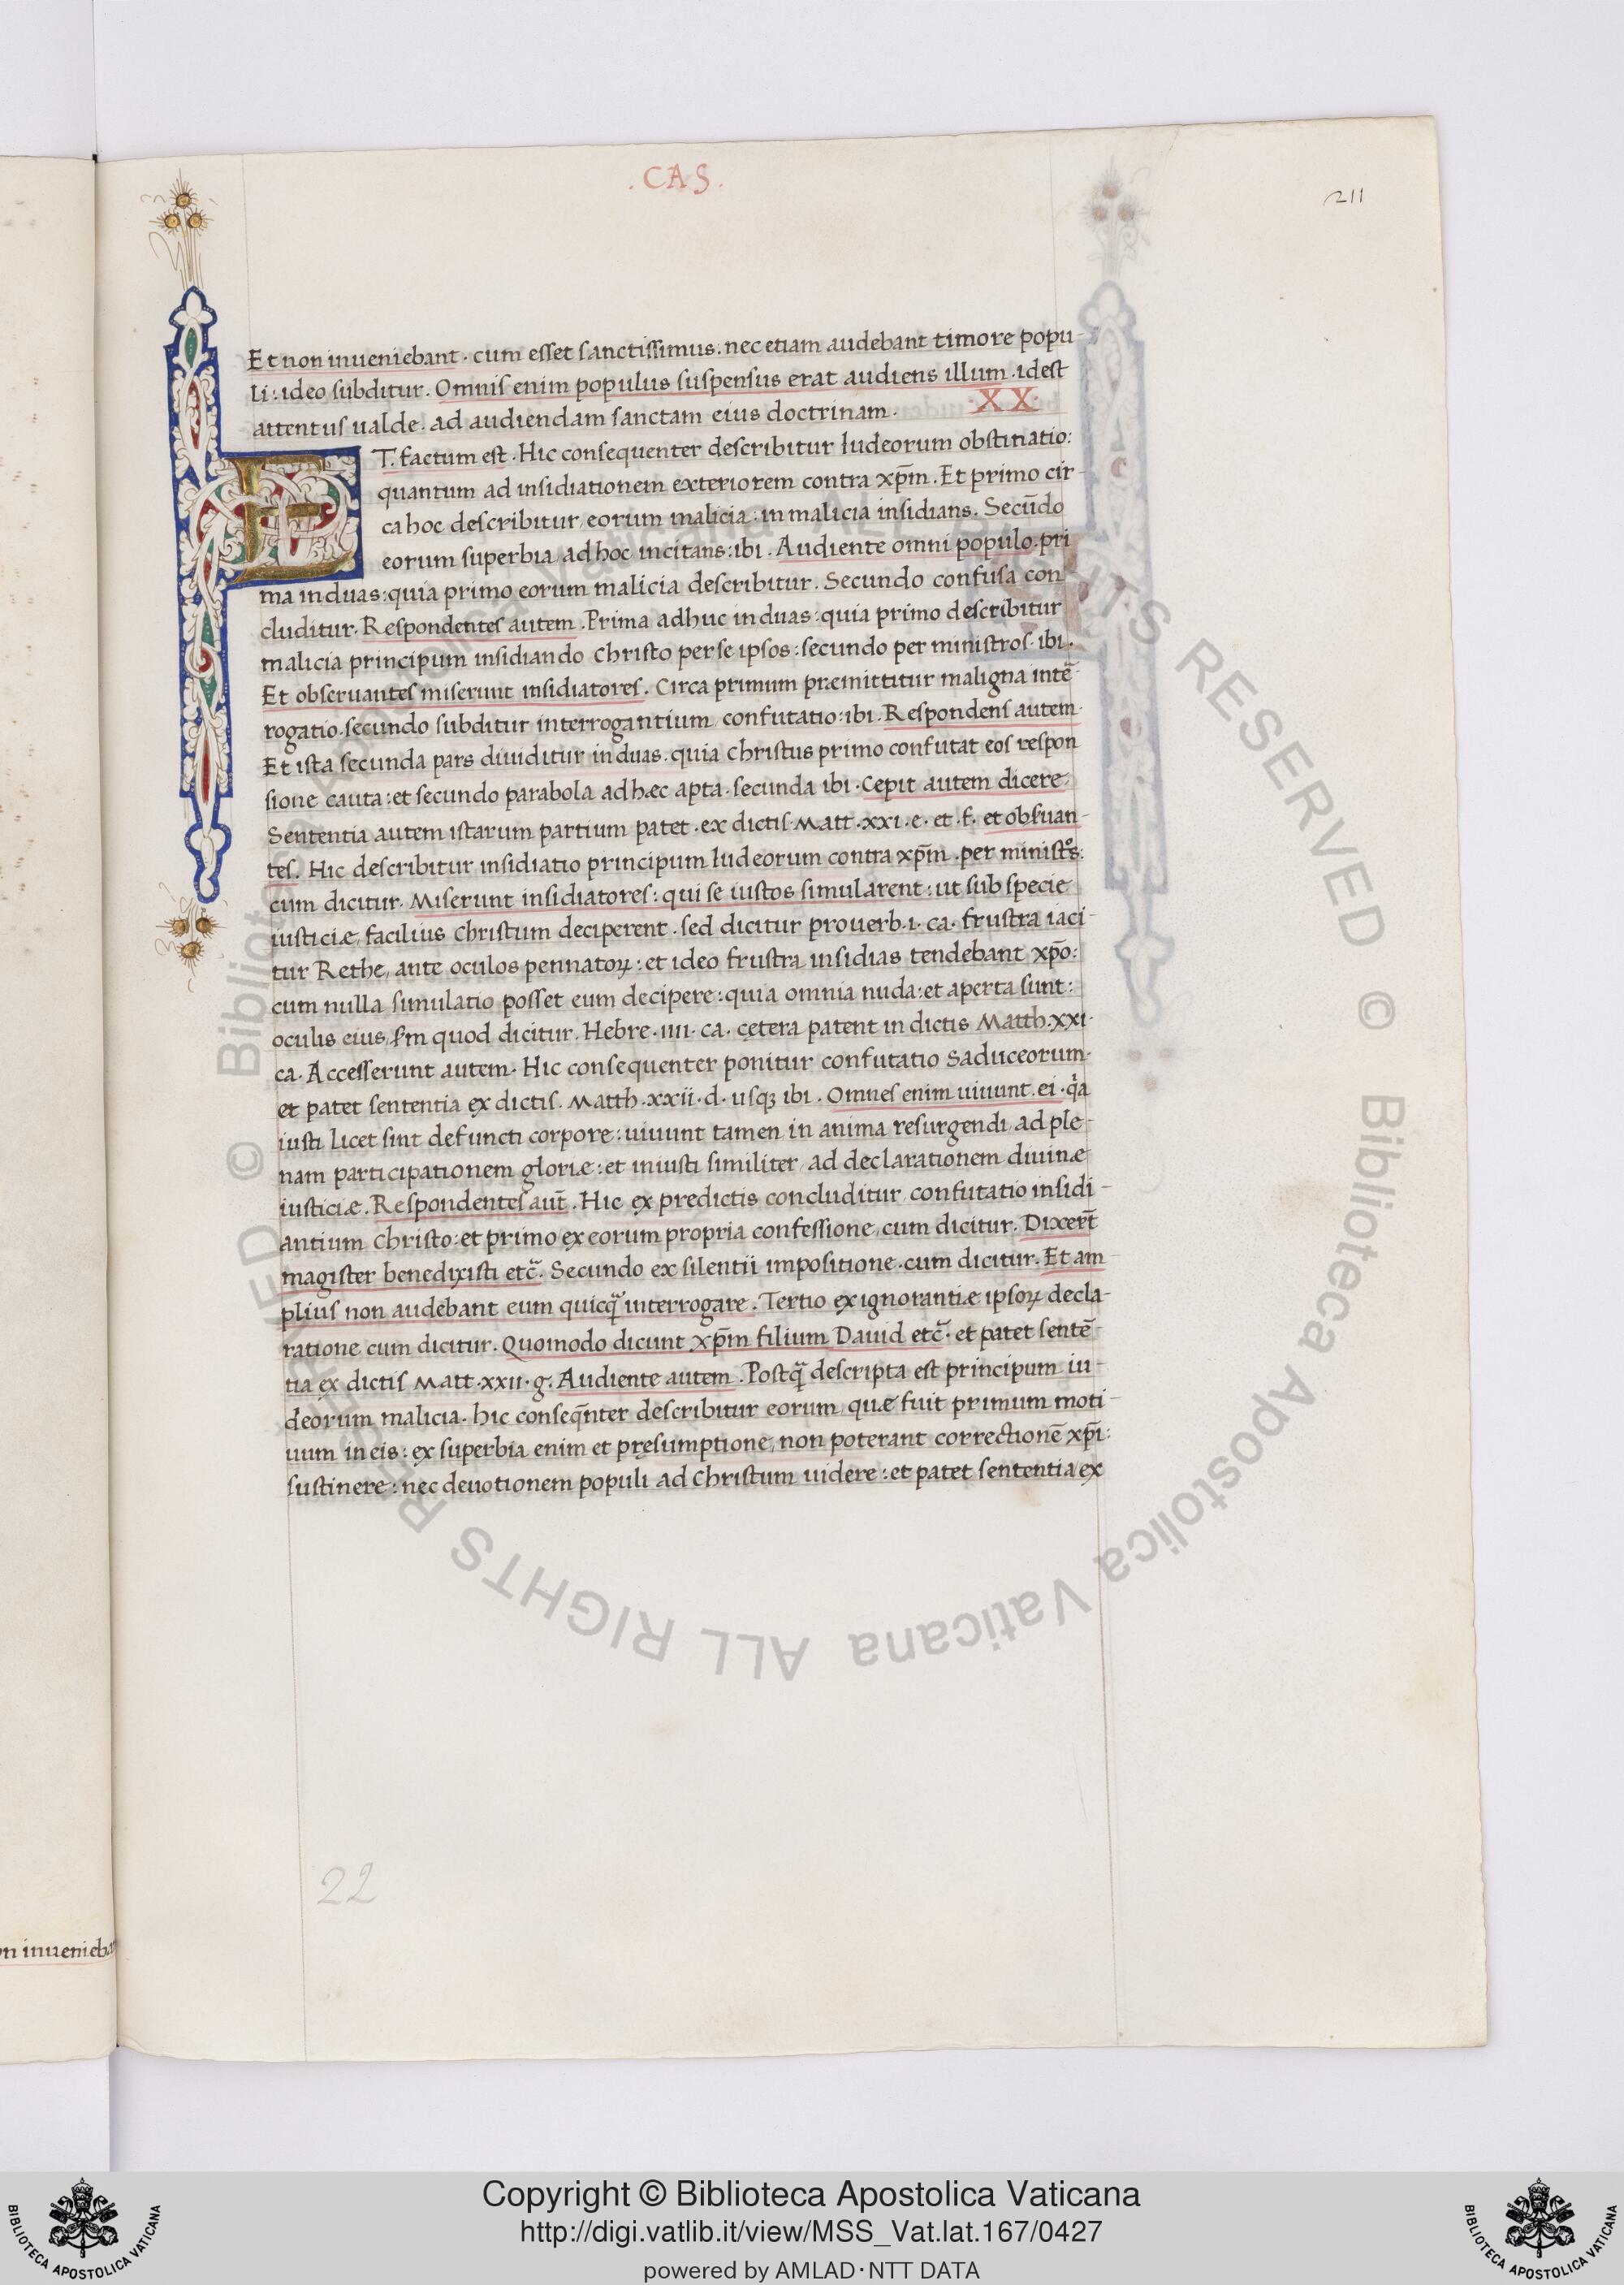 .CAS.
211
Et non inueniebant. cum esset sanctissimus. nec etiam audebant timore popu-
li: ideo subditur. Omnis enim populus suspensus erat audiens illum. idest
attentus ualde. ad audiendam sanctam eius doctrinam.
XX
ET. factum est. Hic consequenter describitur Iudeorum obstinatio:
quantum ad insidiationem exteriorem contra xp̄m. Et primo cir-
ca hoc describitur eorum malicia: in malicia insidians. Secūdo
eorum superbia ad hoc incitans: ibi. Audiente omni populo. pri
ma in duas: quia primo eorum malicia describitur. Secundo confusa con
cluditur. Respondentes autem. Prima adhuc in duas: quia primo describitur
malicia principum insidiando Christo per se ipsos: secundo per ministros. ibi.
Et obseruantes miserunt insidiatores. Circa primum præmittitur maligna intē
rogatio. secundo subditur interrogantium confutatio: ibi. Respondens autem.
Et ista secunda pars diuiditur in duas. quia Christus primo confutat eos respon
sione cauta: et secundo parabola ad hæc apta. secunda ibi. Cepit autem dicere.
Sententia autem istarum partium patet. ex dictis Matt. xxi. e. et. f. et obſuan-
tes. Hic describitur insidiatio principum Iudeorum contra xp̄m. per ministͦs:
cum dicitur. Miserunt insidiatores: qui se iustos simularent: ut sub specie
iusticiæ facilius Christum deciperent. sed dicitur prouerb. i. ca. frustra iaci-
tur Rethe, ante oculos pennatoꝝ: et ideo frustra insidias tendebant xp̄o:
cum nulla simulatio posset eum decipere: quia omnia nuda: et aperta sunt:
oculis eius, ẜm quod dicitur. Hebre. iiii. ca. cętera patent in dictis Matth. xxi.
ca. Accesserunt autem. Hic consequenter ponitur confutatio Saduceorum.
et patet sententia ex dictis. Matth. xxii. d. usqꝫ ibi. Omnes enim uiuunt. ei. qͥa
iusti licet sint defuncti corpore: uiuunt tamen in anima resurgendi ad ple-
nam participationem gloriæ: et iniusti similiter ad declarationem diuinæ
iusticiæ. Respondentes aut̄. Hic ex predictis concluditur confutatio insidi-
antium Christo: et primo ex eorum propria confessione, cum dicitur. Dixert̄
magister benedixisti etc̄. Secundo ex silentii impositione. cum dicitur. Et am
plius non audebant eum quicq̄ interrogare. Tertio ex ignorantiæ ipsoꝝ decla-
ratione cum dicitur. Quomodo dicunt xp̄m filium Dauid etc̄. et patet sentē-
tia ex dictis Matt. xxii. g. Audiente autem. Postq̄ descripta est principum iu-
deorum malicia. hic conseq̄nter describitur eorum, quæ fuit primum moti-
uum in eis: ex superbia enim et pręsumptione, non poterant correctionē xp̄i:
sustinere: nec deuotionem populi ad Christum uidere: et patet sententia ex
22
on inuenieban
© Biblioteca Apostolica Vaticana ALL RIGHTS RESERVED © Biblioteca Apostolica Vaticana ALL RIGHTS RESERVED
Copyright © Biblioteca Apostolica Vaticana
http://digi.vatlib.it/view/MSS_Vat.lat.167/0427
powered by AMLAD·NTT DATA
BIBLIOTECA APOSTOLICA VATICANA
BIBLIOTECA APOSTOLICA VATICANA